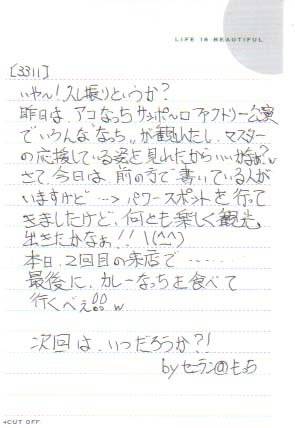 LIFE IS BEAUTIFUL
[3311]
いや〜!久し振りというか?
昨日は、アコなっち サッポーロファクトリー公演
で いろんな"なっち"が観れたし、マスター
の応援している姿を見れたからいいかなぁ?w
さて、今日は、前の方で書いている人が
いますけど…→パワースポットを行って
きましたけど、何とも楽しく観光
出きたかなぁ!! \(^^)
本日、2回目の来店で……
最後に、カレーなっちを食べて
行くべぇ!!w
次回は、いつだろうか?!
byセーラン@もあ
*CUT OFF